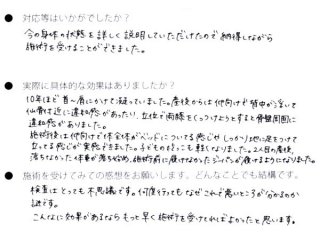 ● 対応等はいかがでしたか？
今の身体の状態を詳しく説明していただけたので納得しながら
施術を受けることができました。
● 実際に具体的な効果はありましたか？
10年ほど首〜肩にかけて凝っていました。産後からは仰向けで背中が浮いて
仙骨付近に違和感があったり、立位で両膝をくっつけようとすると骨盤周囲に
違和感がありました。
施術後は仰向けで体全体がベッドについてる感じや しっかり地に足をつけて
立ってる感じが実感できました。子どもの抱っこも軽くなりました。2人目の産後、
落ちなかった体重が落ち始め、施術前に履けなかったジーパンが履けるようになりました。
● 施術を受けてみての感想をお願いします。どんなことでも結構です。
検査はとっても不思議です。何度行ってもなぜこれで悪いところが分かるのか
謎です。
こんなに効果があるなら もっと早く施術を受けてればよかったと思います。